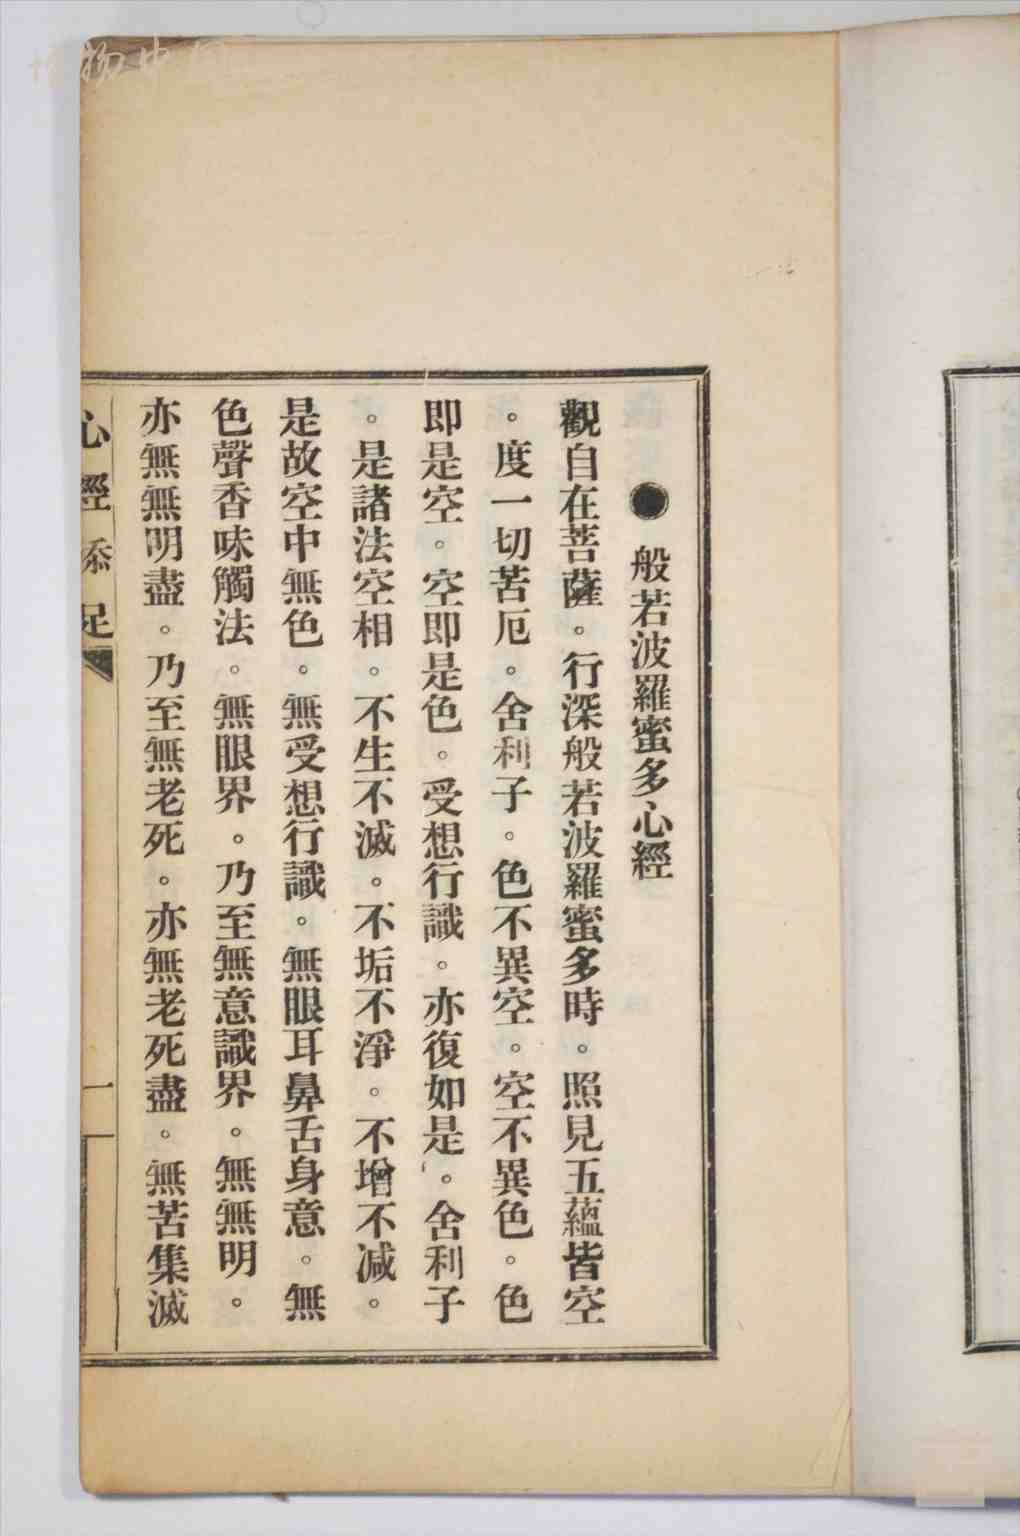 ●般若波羅蜜多心經
觀自在菩薩。行深般若波羅蜜多時。照見五蘊皆空
。度一切苦厄。舍利子。色不異空。空不異色。色
即是空。空即是色。受想行識。亦復如是。舍利子
。是諸法空相。不生不滅。不垢不淨。不增不减。
是故空中無色。無受想行識。無眼耳鼻舌身意。無
色聲香味觸法。無眼界。乃至無意識界。無無明。
亦無無明盡。乃至無老死。亦無老死盡。無苦集滅
心經添足
一